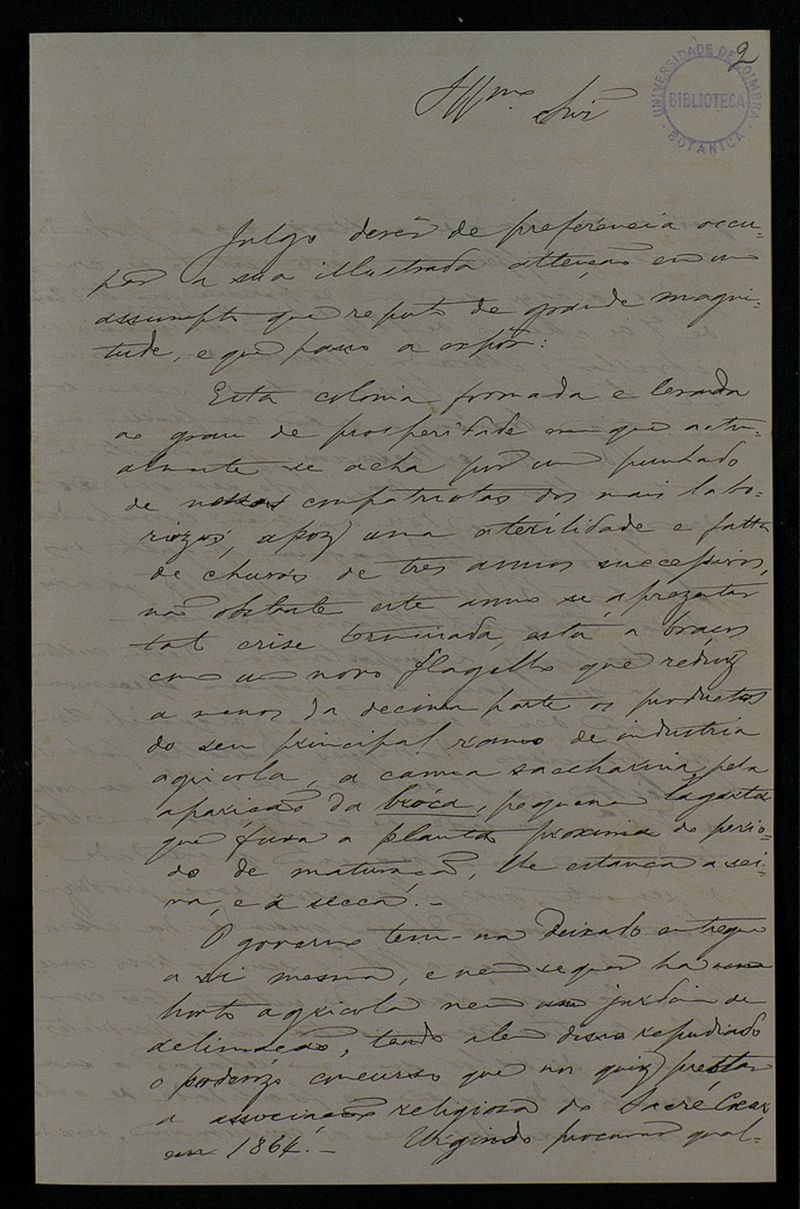 2
UNIVERSIDADE DE COIMBRA
BIBLIOTECA
BOTANICA
Illmo. Snr.
Julgo dever de preferencia occu-
par a sua illustrada attenção em um
assumpto que reputo de grande magni-
tude, e que passo a expôr:
Esta colonia formada e levada
ao grau de prosperidade em que actu-
almente se acha por um punhado
de nossos compatriotas dos mais labo-
riozos, apoz uma esterilidade e falta
de chuvas de tres annos successivos,
não obstante este anno se aprezentar
tal crise terminada, está a braços
com um novo flagello que reduz
a menos da decima parte os productos
do seu principal ramo de industria
agricola, a canna saccharina, pela
aparição da bróca, pequena lagarta
que fura a planta proxima do perio-
do de maturação, lhe estanca a sei-
va, e a secca. -
O governo tem-na deixado entregue
a si mesma, e nem sequer ha um
horto agricola nem um jardim de
aclimação, tendo alem disso repudiado
o poderozo concurso que nos quiz prestar
a associação religiosa do Sacré Coeur
em 1864. - Urgindo procurar qual-